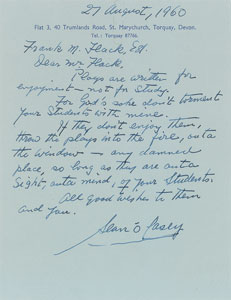 27 August, 1960
Flat 3, 40 Trumlands Road, St. Marychurch, Torquay, Devon.
Tel.: Torquay 87766.
Frank M. Flack, Esq.
Dear Mr Flack.
Plays are written for
enjoyment – not for Study.
For God's sake don't torment
Your Students with mine.
If they don't enjoy them,
throw the plays into the fire, outa
the window – any damned
place, so long as they are outa
Sight, outa mind, of Your Students.
All good wishes to them
and You.
Sean O'Casey